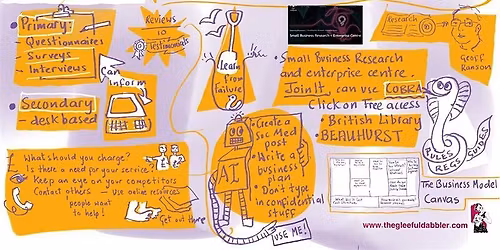 Primary:
- Questionnaires
- Surveys
- Interviews
can
Inform
Secondary
- desk based
Reviews
Testimonials
Learn
from
failure
Small Business Research + Enterprise Centre
Research
Geoff
Ranson
• Small Business Research
and enterprise centre.
Join It, can use COBRA
Click on free access
• British Library
• BEAUHURST
RULES
REGS
GUIDES
What should you charge?
Is there a need for your service?
Keep an eye on your competitors
Contact others - use online resources
people want
to help!
Get out there
AI
• Create a
Soc Med
post
• Write a
business
plan
• Don't type
in confidential
stuff
USE ME!
The Business Model
Canvas
www.thegleefuldabbler.com